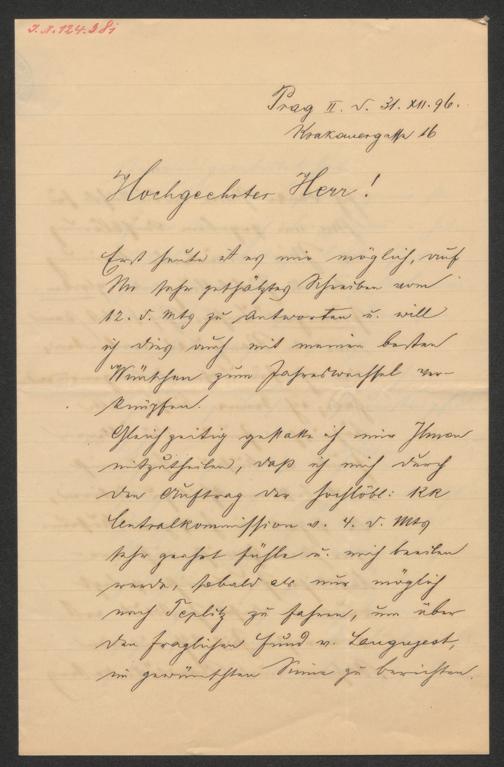 J.N. 124.381
Prag II. d. 31. XII. 96.
Krakauergasse 16
Hochgeehrter Herr!
Erst heute ist es mir möglich, auf
Ihr sehr geschätztes Schreiben vom
12. d. Mts zu antworten u. will
ich dies auch mit meinen besten
Wünschen zum Jahreswechsel ver-
knüpfen.
Gleichzeitig gestatte ich mir Ihnen
mitzutheilen, daß ich mich durch
den Auftrag der hochlöbl: kk
Centralkommission v. 4. d. Mts
sehr geehrt fühle u. mich beeilen
werde, sobald als nur möglich
nach Teplitz zu fahren, um über
den fraglichen Fund v. Langugest,
im gewünschten Sinne zu berichten.